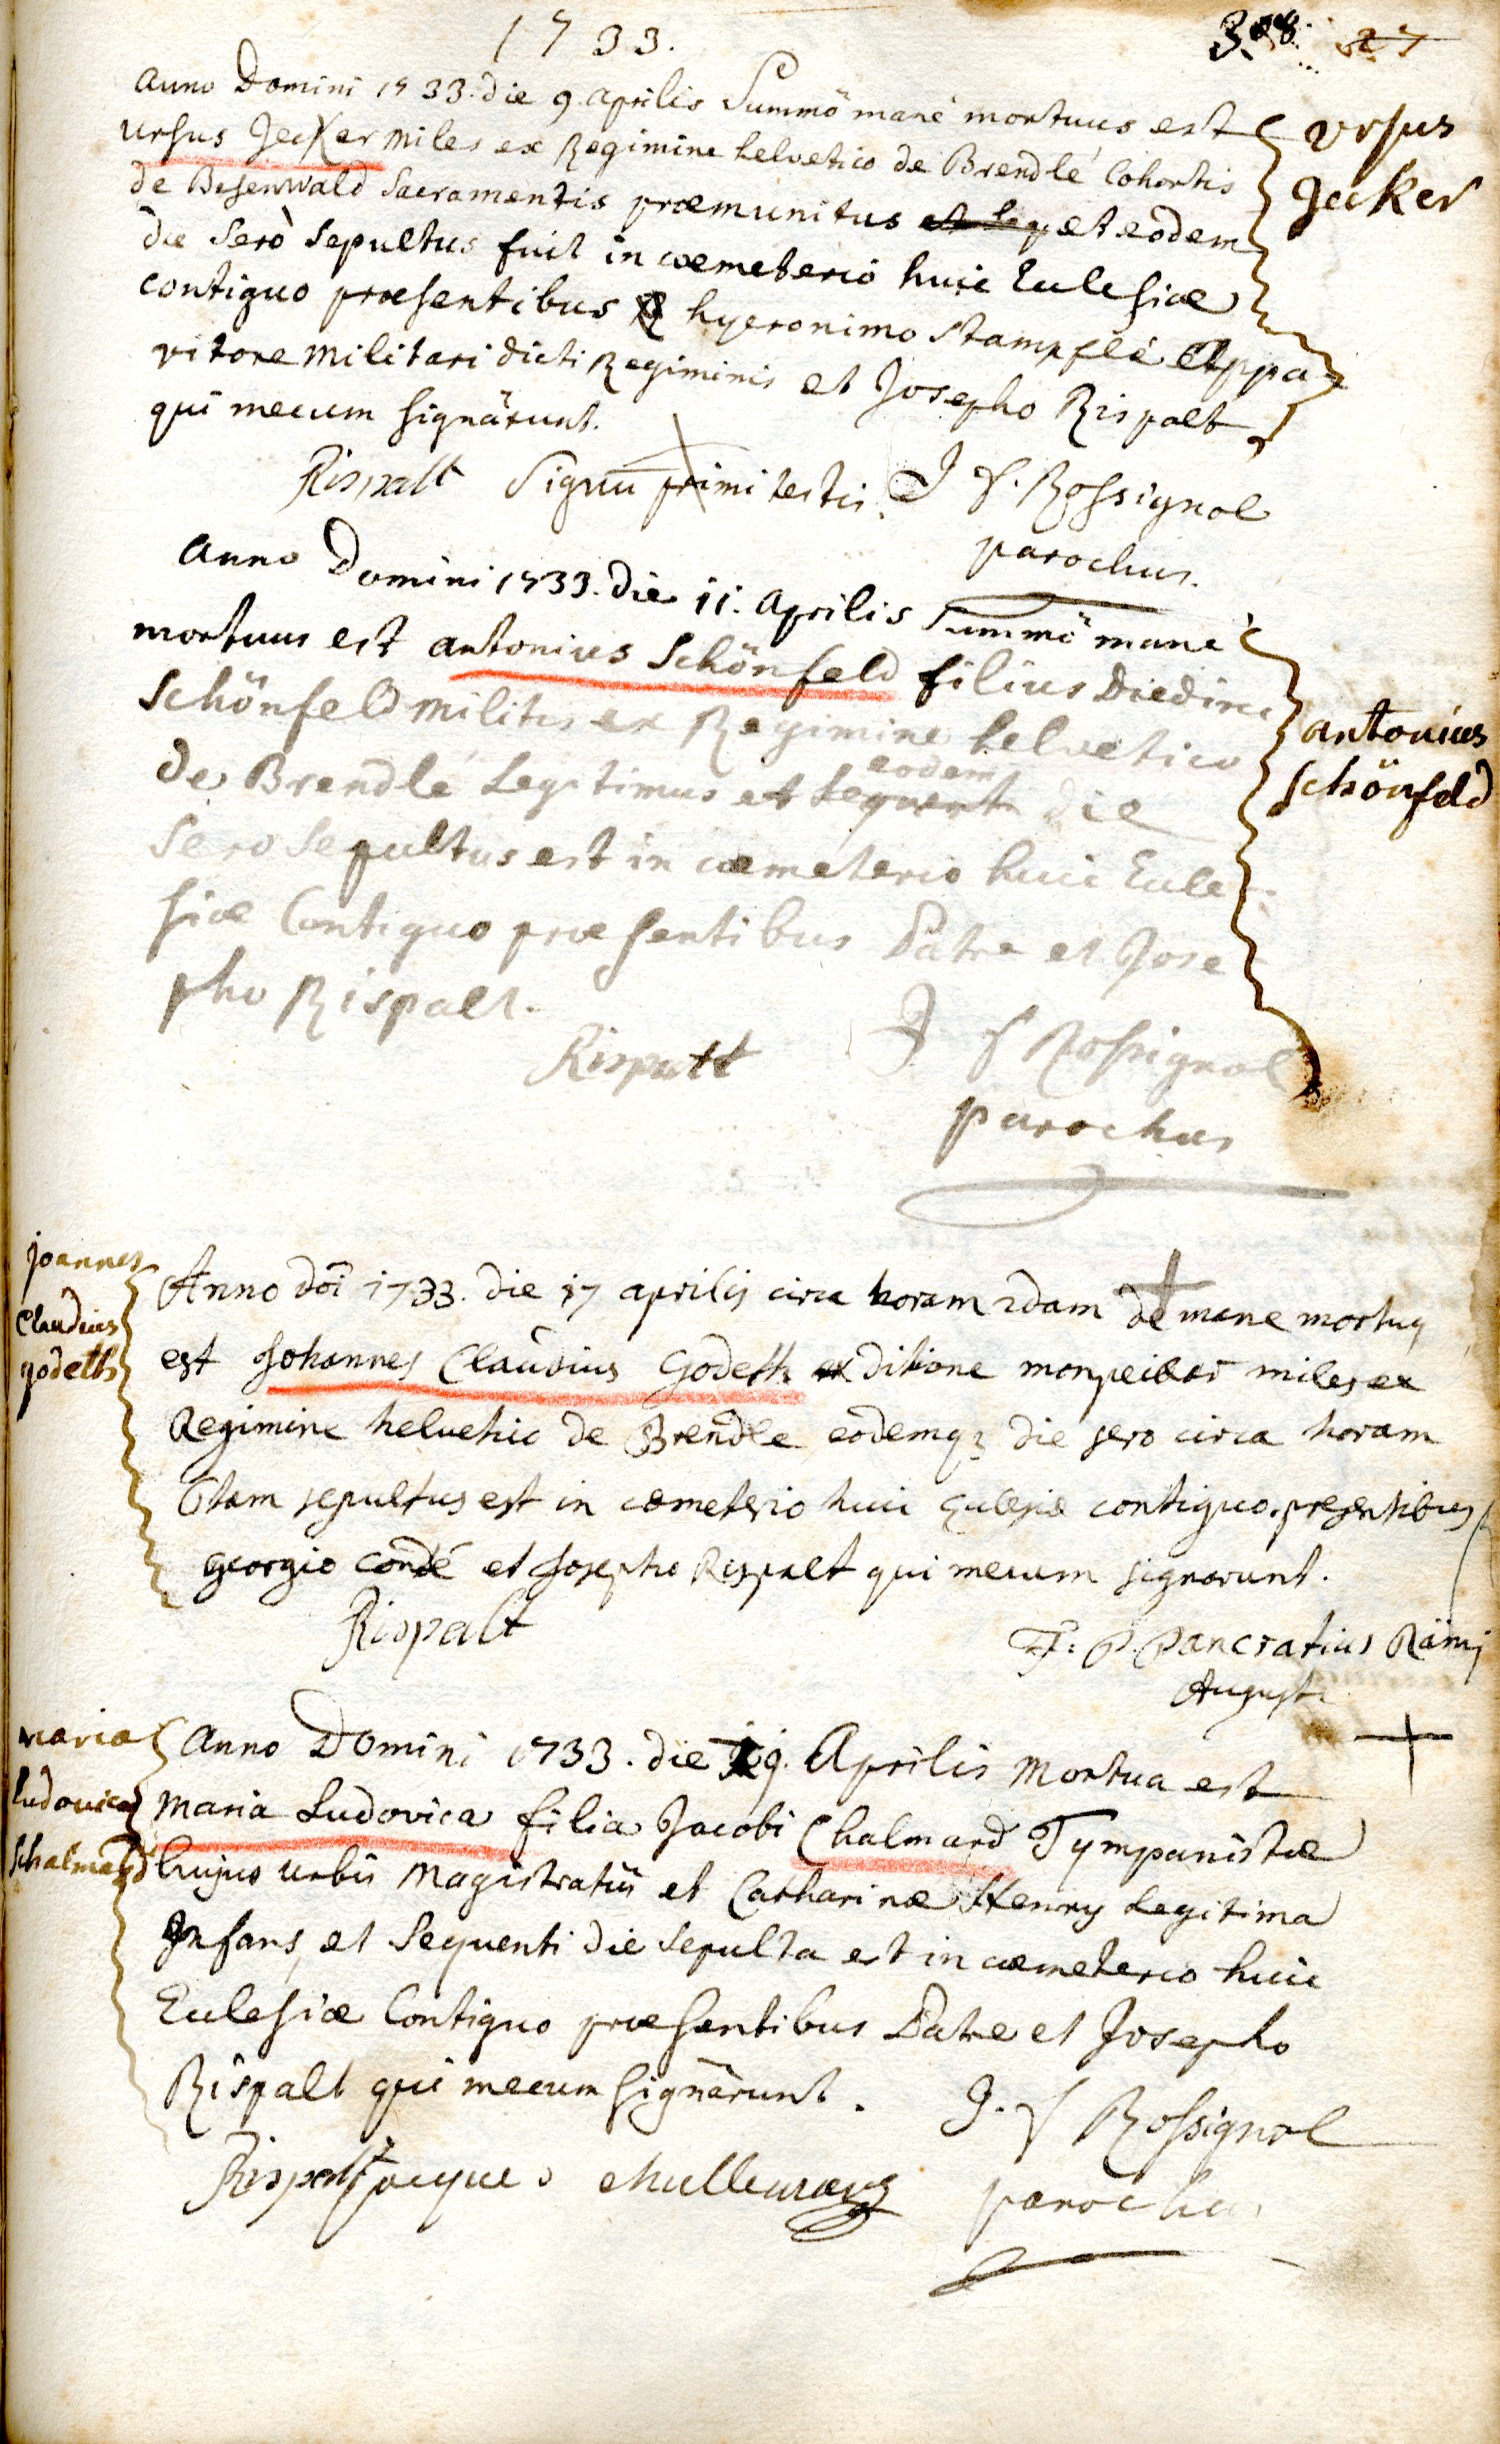 1733.
308. 27
Anno Domini 1733. die 9. aprilis Summô manè mortuus est
Ursus Jecker miles ex Regimine helvetico de Brendlé Cohortis
de Besenwald Sacramentis præmunitus et seq et eodem
die Serò Sepultus fuit in cœmeterio huic Ecclesiæ
contiguo præsentibus hyeronimo Stampflé Appa
ritore militari dicti Regiminis et Josepho Rispalt
qui mecum signârunt.
Ursus
Jecker
Rispalt Signum primi testis J f. Rossignol
parochus.
Anno Domini 1733. die 11. Aprilis Summô manè
mortuus est antonius Schönfeld filius
Schönfeld militis ex Regimine helvetico
de Brendlé Legitimus et sequenti eodem die
Sero Sepultus est in cœmeterio huic Eccle-
siæ Contiguo præsentibus Patre et Jose
pho Rispalt.
antonius
schönfeld
Rispalt J f Rossignol
parochus
joannes
Claudius
godeth
Anno dôi 1733. die 17 aprilis circa horam 2dam de mane mortuq
est Johannes Claudius Godeth ex ditione miles ex
Regimine helvetic de Brendle eodemq3 die sero circa horam
sepultus est in cœmeterio huic Ecclesiæ contiguo. presentibus
georgio condé et Josepho Rispalt qui mecum signarunt.
Rispalt F: P. Pancratius Rämi
August:
maria
ludovica
schalmard
Anno Domini 1733. die 19. Aprilis mortua est
Maria Ludovica filia Jacobi Chalmard Tympanistæ
hujus urbis Magistratûs et Catharinæ Henry Legitima
Infans, et Sequenti die Sepulta est in cœmeterio huic
Ecclesiæ Contiguo præsentibus Patre et Josepho
Rispalt qui mecum signârunt.
J. f Rossignol
Rispalt jacques parochus